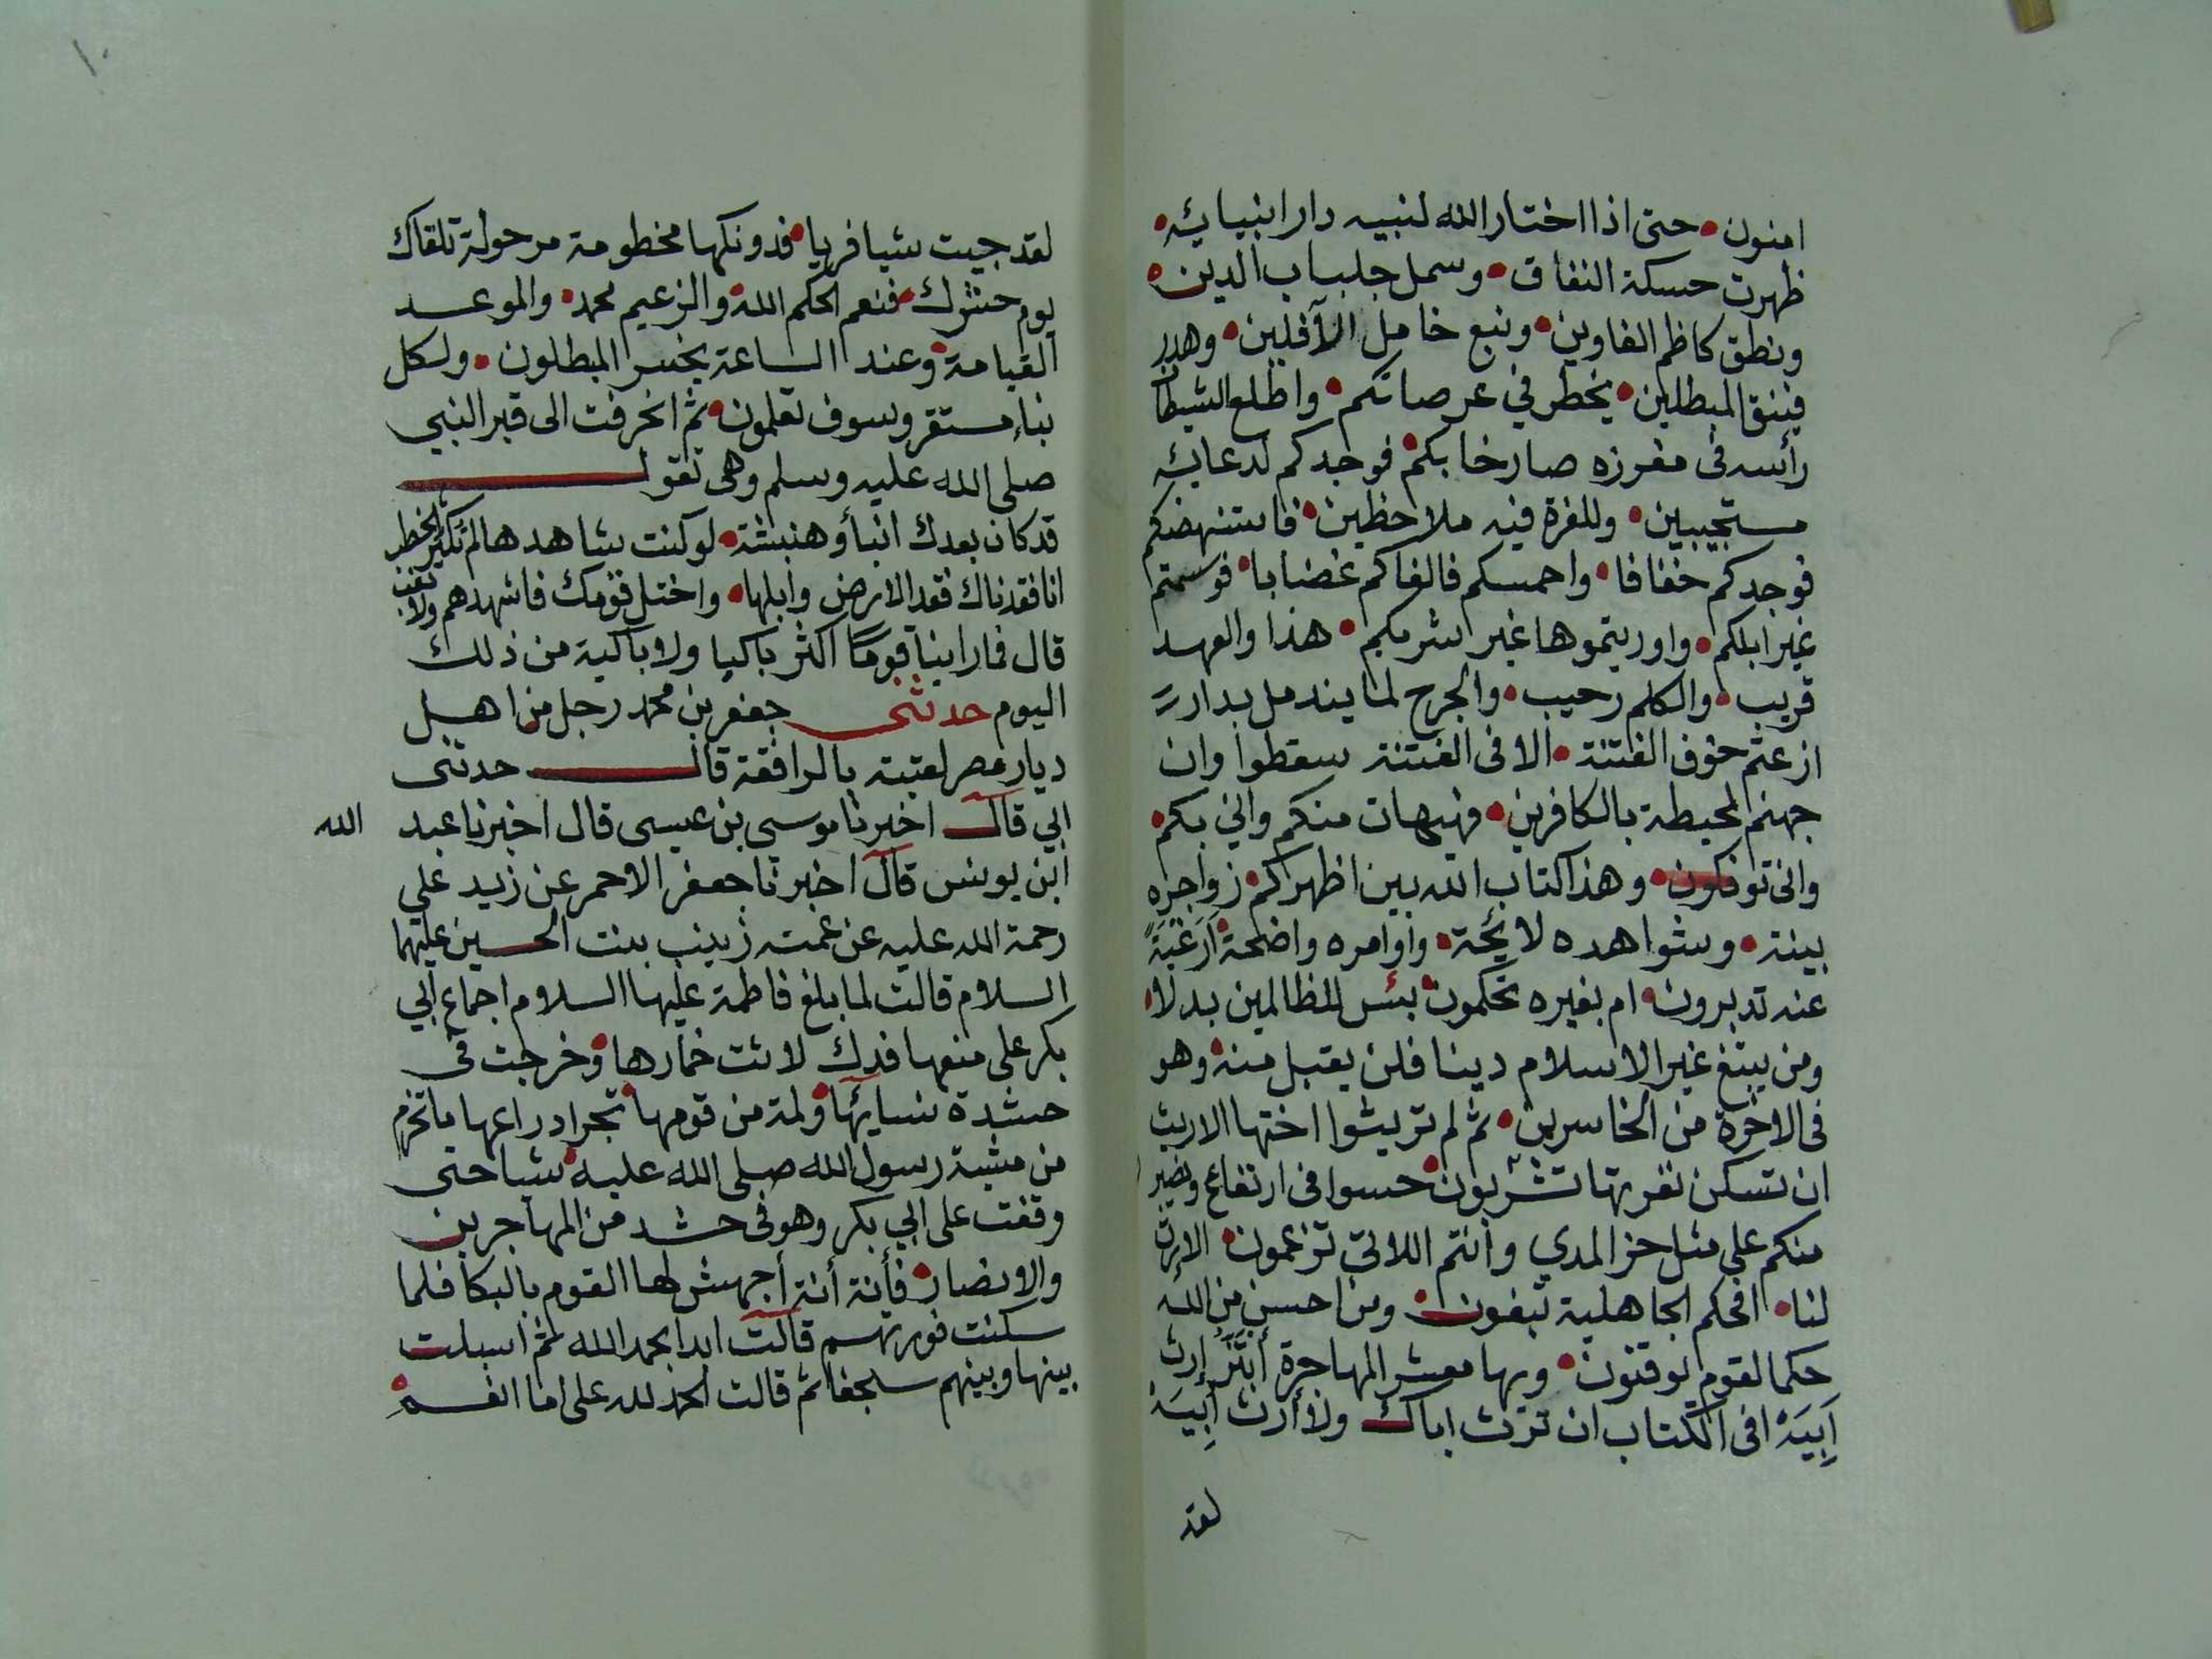 امنون • حتى اذا اختار الله لنبيه دار انبيائه •
ظهرت حسكة النفاق • وسمل جلباب الدين •
ونطق كاظم الغاوين • ونبع خامل الآفلين • وهدر
فينق المبطلين • يخطر في عرصاتكم • واطلع الشيطان
رأسه فى مغرزه صارخا بكم • فوجدكم لدعائه
مستجيبين • وللغرة فيه ملاحظين • فاستنهضكم
فوجدكم خفافا • واحمسكم فالفاكم غضابا • فوسمتم
غير ابلكم • واوريتموها غير شربكم • هذا والعهد
قريب • والكلم رحيب • والجرح لما يندمل بدار
ازعتم خوف الفتنة • الا فى الفتنة سقطوا وان
جهنم لمحيطة بالكافرين • فهيهات منكم واني بكم •
وانى توفكون • وهذا كتاب الله بين اظهركم • زواجره
بينة • وشواهده لائحة • واوامره واضحة • أرغبةً
عنه تدبرون • ام بغيره تحكمون • بئس للظالمين بدلا •
ومن يبتغ غير الاسلام دينا فلن يقبل منه • وهو
فى الاخرة من الخاسرين • ثم لم تريثوا اختها الاريث
ان تسكن نفرتها تشربون • حسوا فى ارتغاع ونصبر
منكم على مثل حز المدي وانتم اللاتي تزعمون • الا ارث
لنا • افحكم الجاهلية تبغون • ومن احسن من الله
حكما لقوم يوقنون • ويها معشر المهاجرة أبتز إرث
أبيه افى الكتاب ان ترث اباك ولا أرث أبيه
لقد
١٠
لقد جيت شيا فريا • فدونكها مخطومة مرحولة تلقاك
يوم حشرك • فنعم الحكم الله • والزعيم محمد • والموعد
القيامة • وعند الساعة يخسر المبطلون • ولكل
نباء مستقر وسوف تعلمون • ثم انحرفت الى قبر النبي
صلى الله عليه وسلم وهى تقول
قد كان بعدك انبأ وهنبشة • لو كنت شاهدها لم تكثر الخطر
انا فقدناك فقد الارض وابلها • واختل قومك فاشهدهم ولا تغب
قال فما راينا قومًا اكثر باكيا ولا باكية من ذلك
اليوم حدثنى جعفر بن محمد رجل من اهل
ديار مصر لقيته بالرافقة قال حدثنى
ابي قال اخبرنا موسى بن عيسى قال اخبرنا عبد الله
ابن يونس قال اخبرنا جعفر الاحمر عن زيد علي
رحمة الله عليه عن عمته زينب بنت الحسين عليهما
السلام قالت لما بلغ فاطمة عليها السلام اجماع ابي
بكر على منعها فدك لاثت خمارها • وخرجت فى
حشدة نسائها • ولمة من قومها • تجر ادراعها ما تخرم
من مشية رسول الله صلى الله عليه • شيا حتى
وقفت على ابي بكر وهو فى حشد من المهاجرين
والانصار • فأنة أنة أجهش لها القوم بالبكا فلما
سكنت فورتهم قالت ابدا بحمد الله ثم اسبلت
بينها وبينهم سجفا ثم قالت الحمد لله على ما انعم •